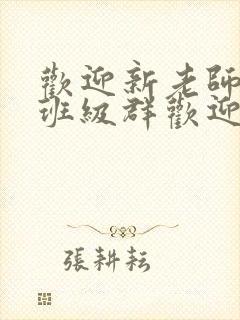 歡迎新老師
班級群歡迎
張耕耘